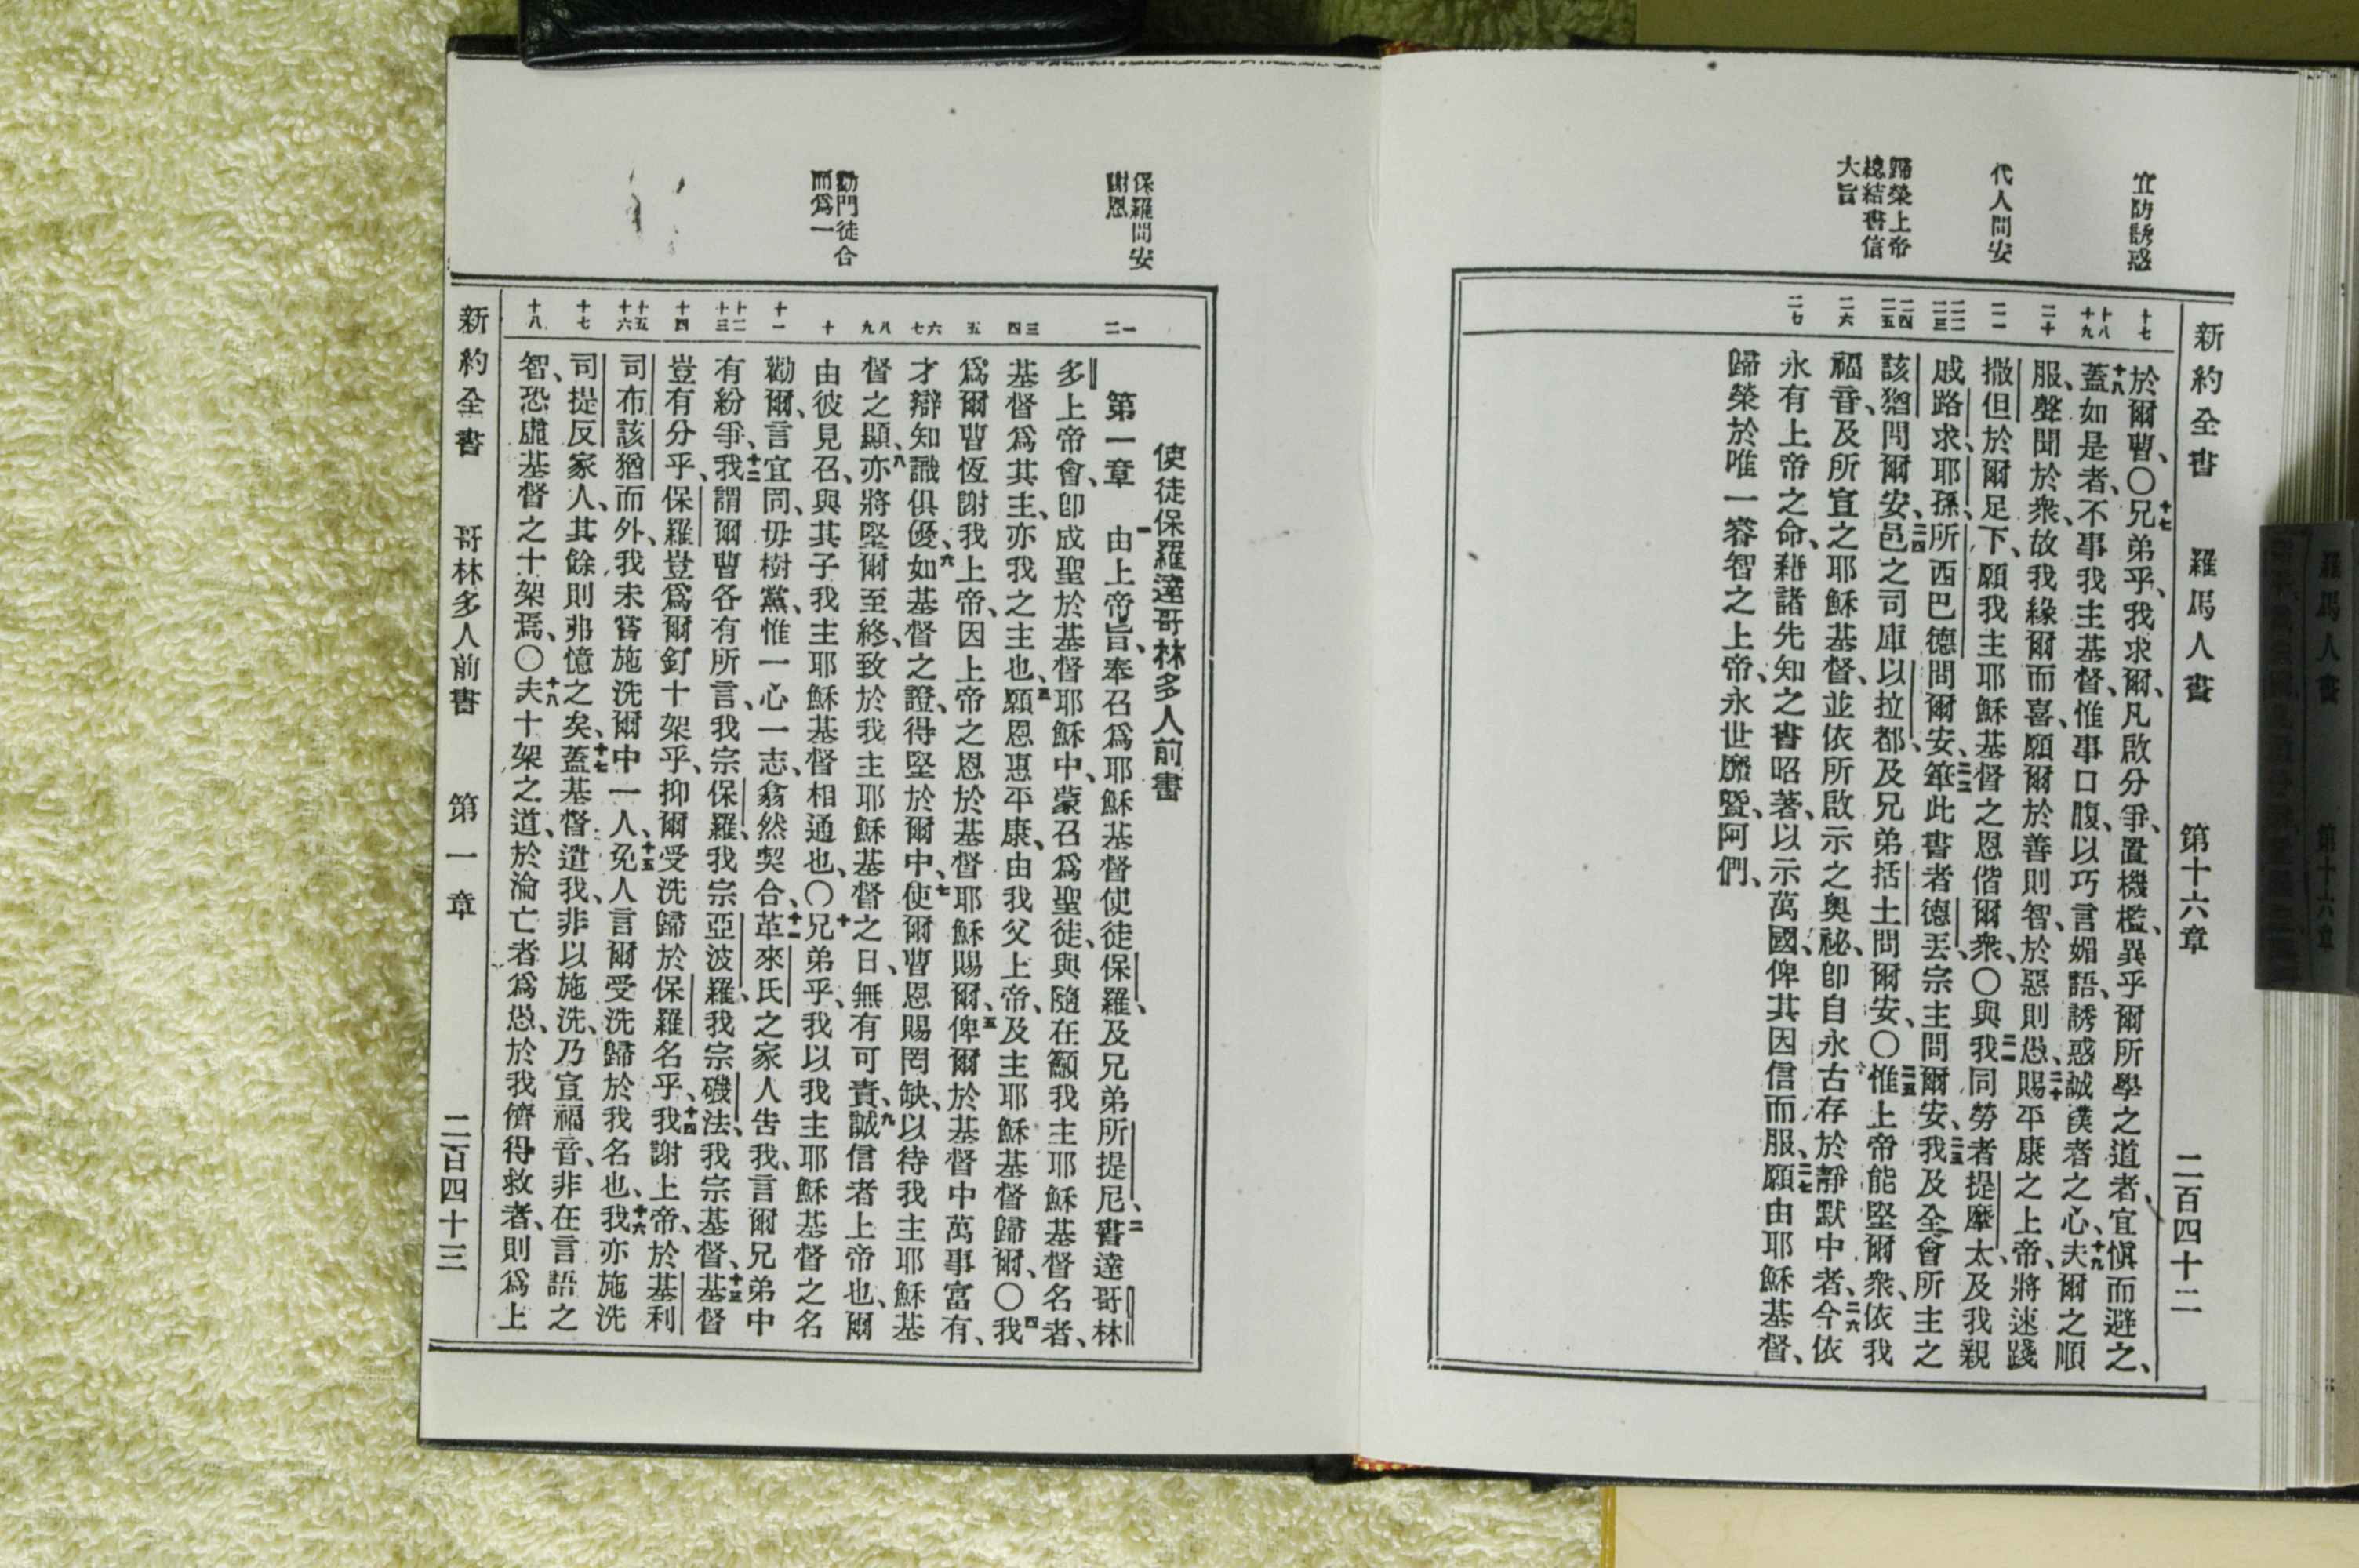 新約全書 羅馬人書 第十六章 二百四十二
宜防誘惑
代人問安
歸榮上帝
總結書信
大旨
十七
十八
十九
二十
二一
二二
二三
二四
二五
二六
二七
於爾曹、〇十七兄弟乎、我求爾、凡啟分爭、置機檻、異乎爾所學之道者、宜愼而避之、
十八蓋如是者、不事我主基督、惟事口腹、以巧言媚語、誘惑誠樸者之心、十九夫爾之順
服、聲聞於衆、故我緣爾而喜、願爾於善則智、於惡則愚、二十賜平康之上帝、將速踐
撒但於爾足下、願我主耶穌基督之恩偕爾衆、〇二一與我同勞者提摩太、及我親
戚路求、耶孫、所西巴德問爾安、二二筆此書者德丟、宗主問爾安、二三我及全會所主之
該猶問爾安、二四邑之司庫以拉都、及兄弟括土問爾安、〇二五惟上帝能堅爾衆、依我
福音、及所宣之耶穌基督、並依所啟示之奧祕、卽自永古存於靜默中者、二六今依
永有上帝之命、藉諸先知之書昭著、以示萬國、俾其因信而服、二七願由耶穌基督、
歸榮於唯一睿智之上帝、永世靡曁、阿們、
保羅問安
謝恩
勸門徒合
而爲一
一
二
三
四
五
六
七
八
九
十
十一
十二
十三
十四
十五
十六
十七
十八
使徒保羅達哥林多人前書
第一章 一由上帝旨、奉召爲耶穌基督使徒保羅、及兄弟所提尼、二書達哥林
多上帝會、卽成聖於基督耶穌中、蒙召爲聖徒、與隨在籲我主耶穌基督名者、
基督爲其主、亦我之主也、三願恩惠平康、由我父上帝、及主耶穌基督歸爾、〇四我
爲爾曹恆謝我上帝、因上帝之恩、於基督耶穌賜爾、五俾爾於基督中萬事富有、
才辯知識俱優、六如基督之證、得堅於爾中、七使爾曹恩賜罔缺、以待我主耶穌基
督之顯、八亦將堅爾至終、致於我主耶穌基督之日、無有可責、九誠信者上帝也、爾
由彼見召、與其子我主耶穌基督相通也、〇十兄弟乎、我以我主耶穌基督之名
勸爾、言宜同、毋樹黨、惟一心一志、翕然契合、十一革來氏之家人吿我、言爾兄弟中
有紛爭、十二我謂爾曹各有所言、我宗保羅、我宗亞波羅、我宗磯法、我宗基督、十三基督
豈有分乎、保羅豈爲爾釘十架乎、抑爾受洗歸於保羅名乎、十四我謝上帝、於基利
司布該猶而外、我未嘗施洗爾中一人、十五免人言爾受洗歸於我名也、十六我亦施洗
司提反家人、其餘則弗憶之矣、十七蓋基督遣我、非以施洗、乃宣福音、非在言語之
智、恐虛基督之十架焉、〇十八夫十架之道、於淪亡者爲愚、於我儕得救者、則爲上
新約全書 哥林多人前書 第一章 二百四十三